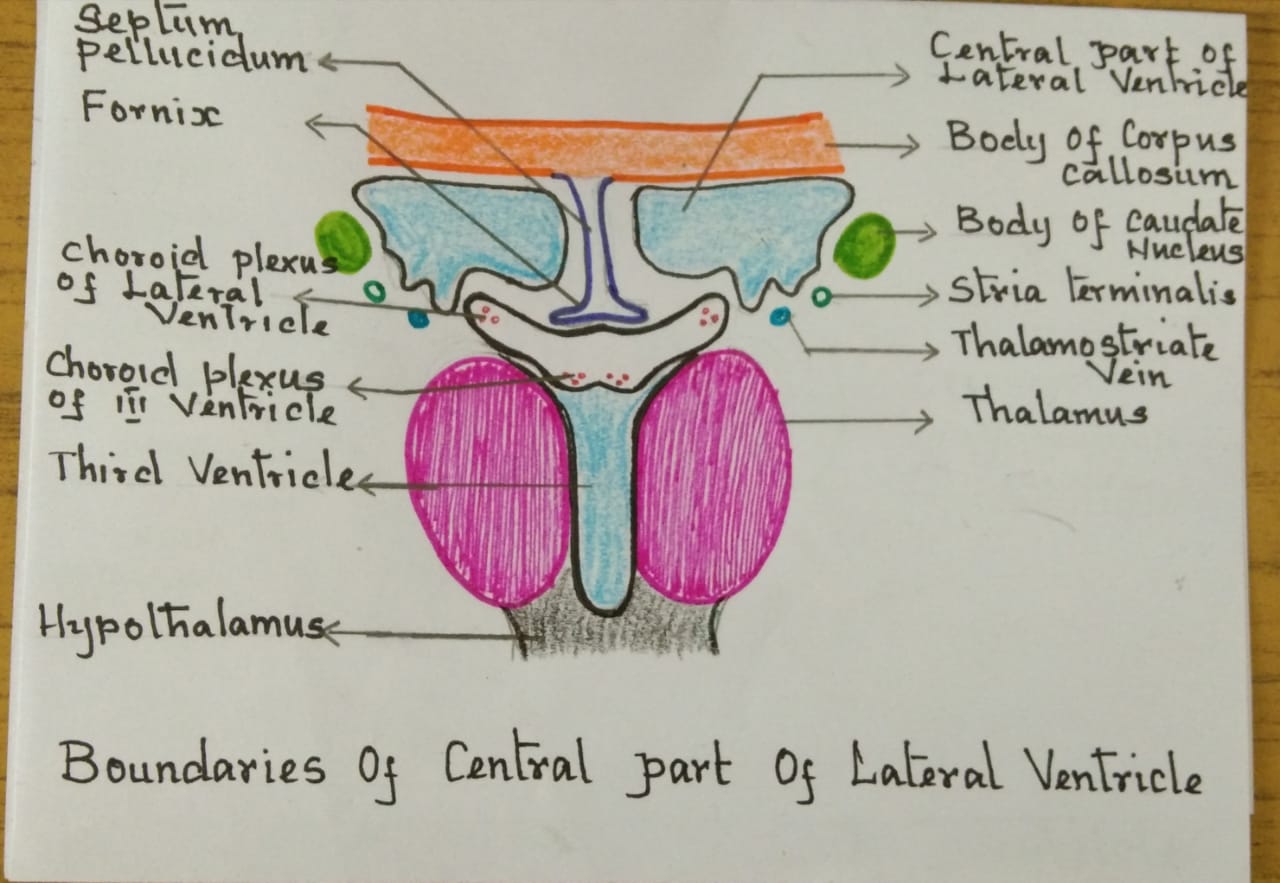 Septum
pellucidum
Fornix
Choroid plexus
of Lateral
Ventricle
Choroid plexus
of III Ventricle
Third Ventricle
Hypothalamus
Central part of
Lateral Ventricle
Body of Corpus
callosum
Body of caudate
Nucleus
Stria terminalis
Thalamostriate
Vein
Thalamus
Boundaries Of Central part Of Lateral Ventricle